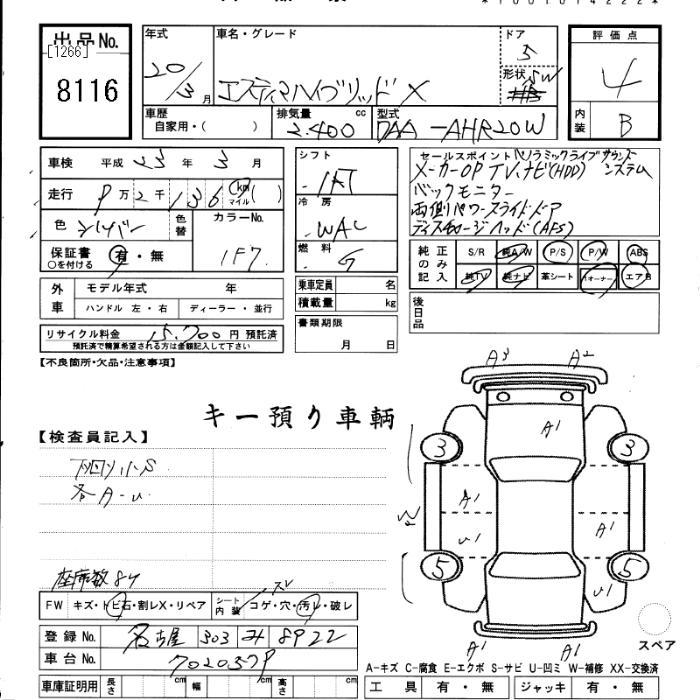 出品No.
[1266]
8116
年式
20/3月
車名・グレード
エスティマハイブリッド X
ドア
5
形状 SW
評価点
4
内装
B
車歴
自家用・( )
排気量 cc
2.400
型式
DAA-AHR20W
車検 平成 23 年 3 月
走行 9万2千136 km マイル ( )
色 シルバー
色替
カラーNo.
1F7
保証書 有・無
○を付ける
シフト
IAT
冷房
WAC
燃料
G
セールスポイント パノラミックライブサウンド
メーカーOP TV、ナビ(HDD) システム
バックモニター
両側パワースライドドア
ディスチャージヘッド(AFS)
純正のみ記入
S/R 純A/W P/S P/W ABS
純TV 純ナビ 革シート 1オーナー エアB
外車
モデル年式 年
ハンドル 左・右 ディーラー・並行
乗車定員 名
積載量 kg
後日品
リサイクル料金 15.700 円 預託済
預託済で精算希望される方は金額記入して下さい
書類期限
月 日
【不良箇所・欠品・注意事項】
キー預り車輌
【検査員記入】
下回り小S
各A-U
座席数
FW キズ・トビ石・割レX・リペア
シート内装 コゲ・穴・汚レ・破レ
スレ
登録No. 名古屋 303 み 8922
車台No. 7020379
車庫証明用 長さ cm 幅 cm 高さ cm
A3 A2
A1
3 3
A1 A1
U1
5 5
U1
A1 A1
スペア
A-キズ C-腐食 E-エクボ S-サビ U-凹ミ W-補修 XX-交換済
工具 有・無 ジャッキ 有・無